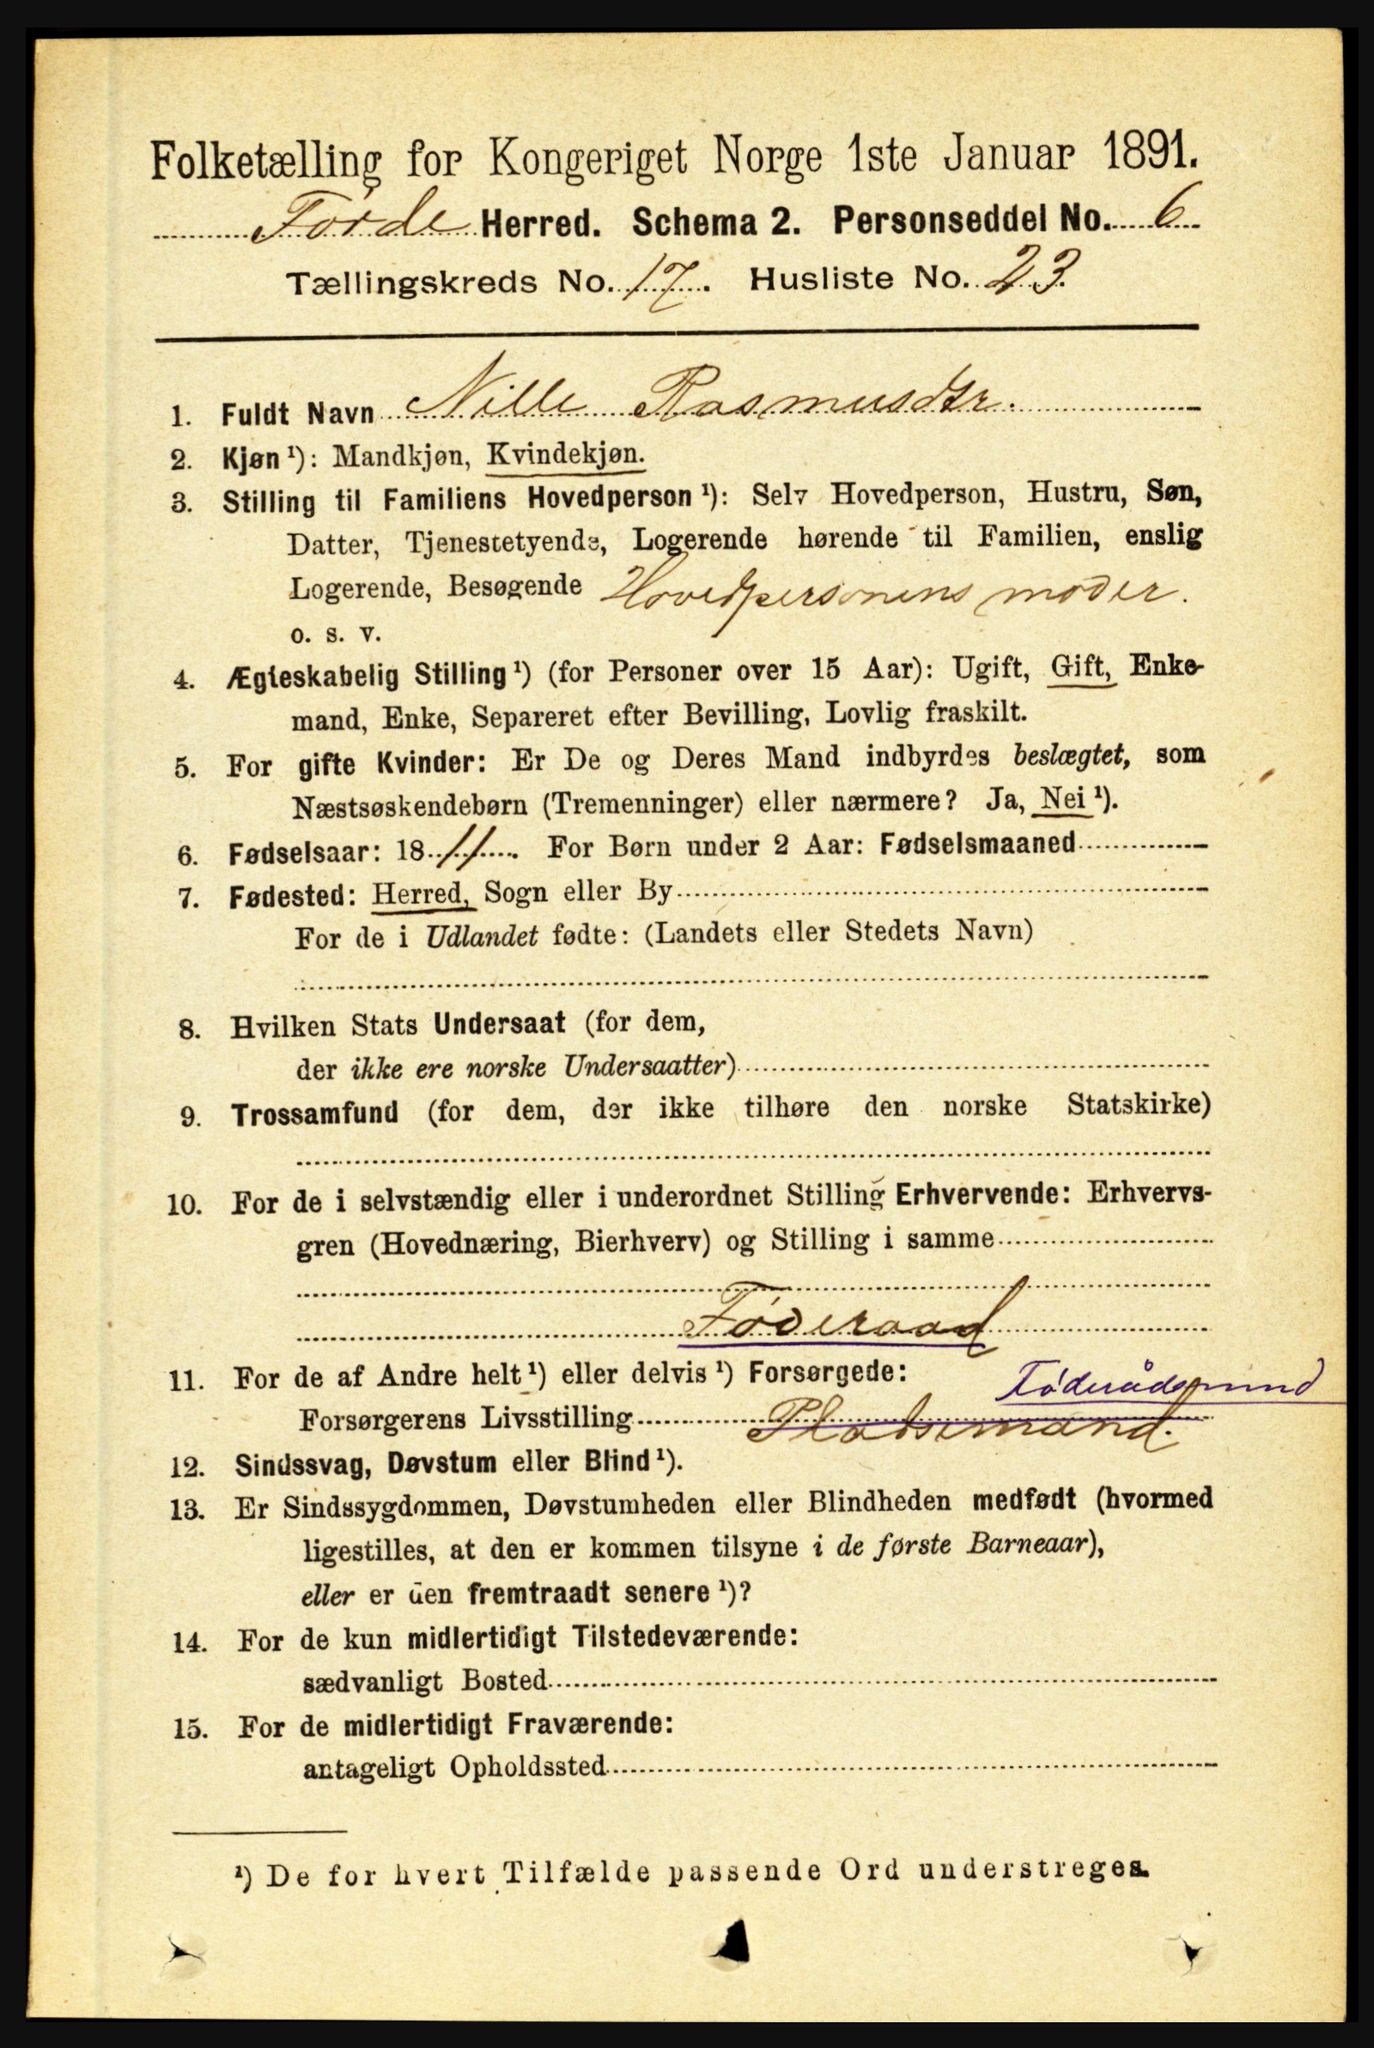 Folketælling for Kongeriget Norge 1ste Januar 1891.
Førde Herred. Schema 2. Personseddel No. 6
Tællingskreds No. 17. Husliste No. 23.
1. Fuldt Navn Nille Rasmusdtr.
2. Kjøn ¹): Mandkjøn, Kvindekjøn.
3. Stilling til Familiens Hovedperson ¹): Selv Hovedperson, Hustru, Søn,
Datter, Tjenestetyende, Logerende hørende til Familien, enslig
Logerende, Besøgende Hovedpersonens moder.
o. s. v.
4. Ægteskabelig Stilling ¹) (for Personer over 15 Aar): Ugift, Gift, Enke-
mand, Enke, Separeret efter Bevilling, Lovlig fraskilt.
5. For gifte Kvinder: Er De og Deres Mand indbyrdes beslægtet, som
Næstsøskendebørn (Tremenninger) eller nærmere? Ja, Nei ¹).
6. Fødselsaar: 1811. For Børn under 2 Aar: Fødselsmaaned
7. Fødested: Herred, Sogn eller By
For de i Udlandet fødte: (Landets eller Stedets Navn)
8. Hvilken Stats Undersaat (for dem,
der ikke ere norske Undersaatter)
9. Trossamfund (for dem, der ikke tilhøre den norske Statskirke)
10. For de i selvstændig eller i underordnet Stilling Erhvervende: Erhvervs-
gren (Hovednæring, Bierhverv) og Stilling i samme
Føderaad
11. For de af Andre helt ¹) eller delvis ¹) Forsørgede: Föderådsmand
Forsørgerens Livsstilling Pladsemand.
12. Sindssvag, Døvstum eller Blind ¹).
13. Er Sindssygdommen, Døvstumheden eller Blindheden medfødt (hvormed
ligestilles, at den er kommen tilsyne i de første Barneaar),
eller er den fremtraadt senere ¹)?
14. For de kun midlertidigt Tilstedeværende:
sædvanligt Bosted
15. For de midlertidigt Fraværende:
antageligt Opholdssted
¹) De for hvert Tilfælde passende Ord understreges.